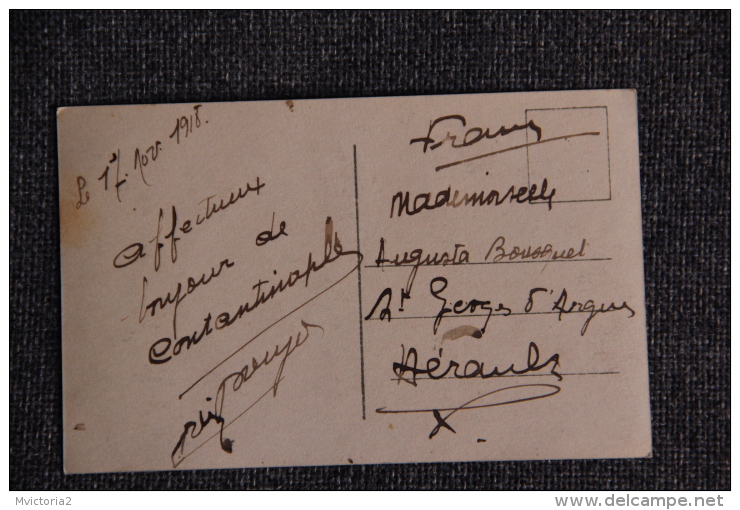 Le 17 Nov. 1918.
Affectueux
bonjour de
Constantinople
France
Mademoiselle
Augusta Bousquet
St Georges d'Orques
Hérault
Mvictoria2
www.delcampe.net